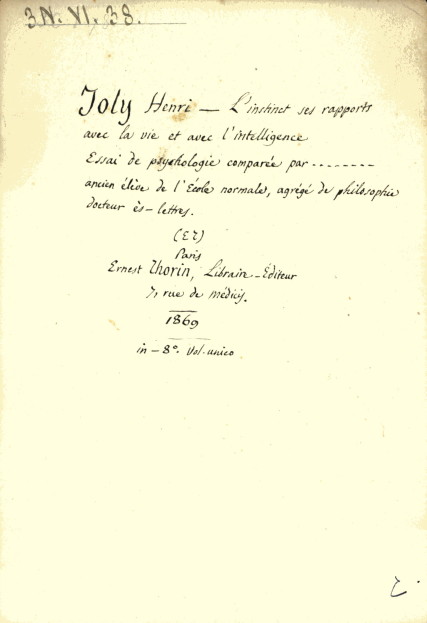 3N. VI. 38.
Joly Henri — L'instinct ses rapports
avec la vie et avec l'intelligence
Essai de psychologie comparée par --------
ancien élève de l'École normale, agrégé de philosophie
docteur ès-lettres.
Paris
Ernest Thorin, Libraire-Éditeur
7, rue de médicis.
1869
in-8°. Vol. unico